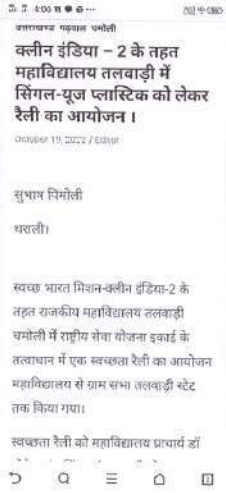 4:06
उत्तराखण्ड गढ़वाल चमोली
क्लीन इंडिया – 2 के तहत
महाविद्यालय तलवाड़ी में
सिंगल-यूज प्लास्टिक को लेकर
रैली का आयोजन ।
October 19, 2022 / Editor
सुभाष पिमोली
थराली।
स्वच्छ भारत मिशन-क्लीन इंडिया-2 के
तहत राजकीय महाविद्यालय तलवाड़ी
चमोली में राष्ट्रीय सेवा योजना इकाई के
तत्वाधान में एक स्वच्छता रैली का आयोजन
महाविद्यालय से ग्राम सभा तलवाड़ी स्टेट
तक किया गया।
स्वच्छता रैली को महाविद्यालय प्राचार्य डॉ